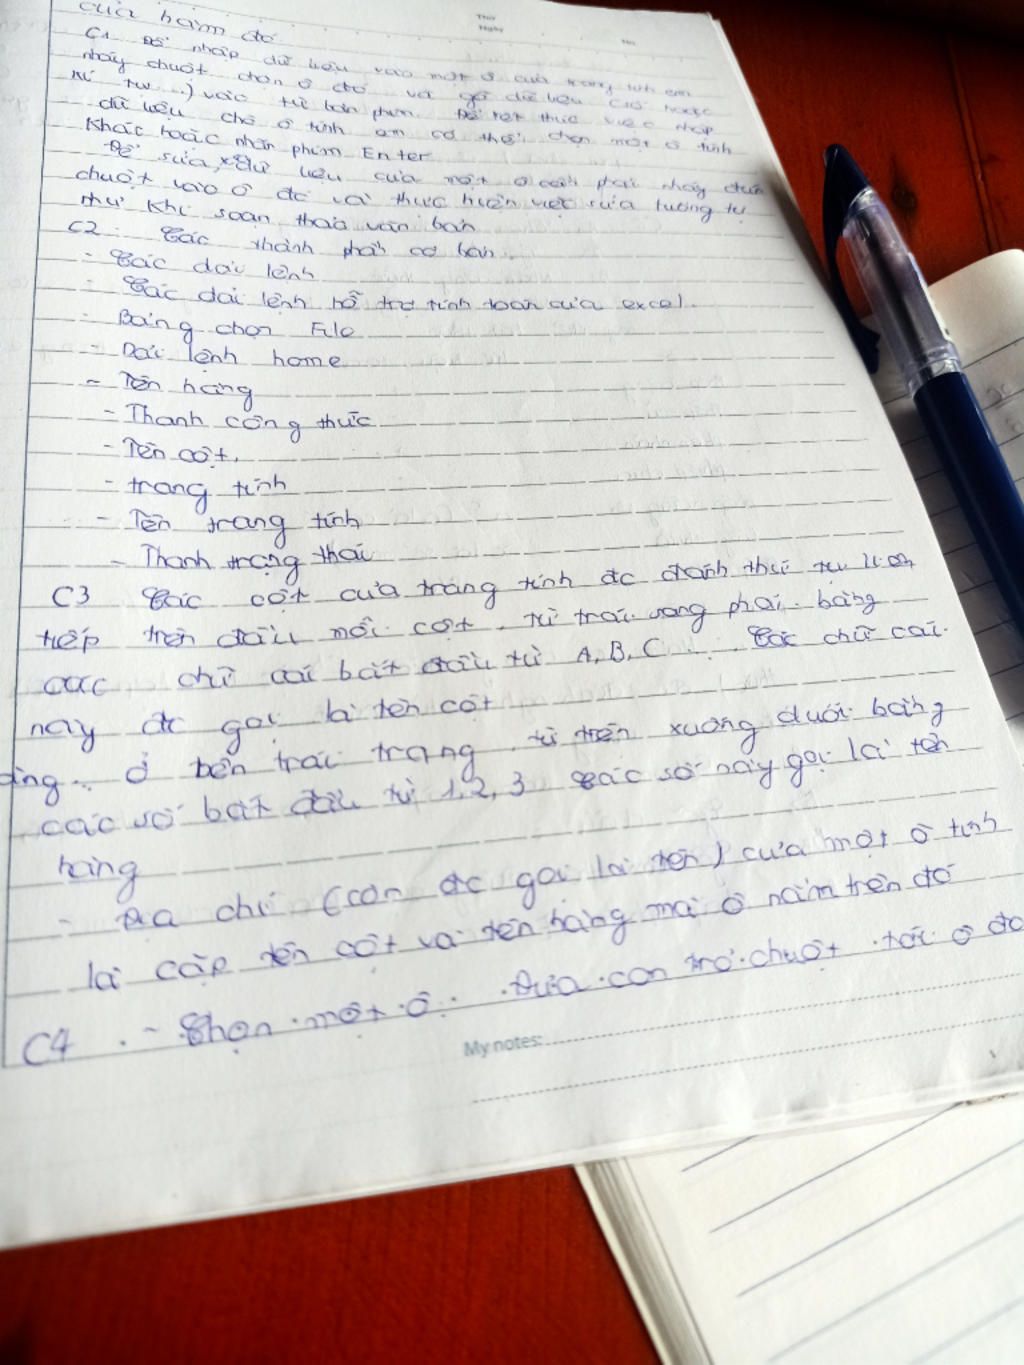 của hàm đó
Thứ
Ngày
No.
C1 Để nhập dữ liệu vào một ô của trang tính em
nháy chuột chọn ô đó và gõ dữ liệu (số hoặc
kí tự...) vào từ bàn phím. Để kết thúc việc nhập
dữ liệu cho ô tính em có thể chọn một ô tính
khác hoặc nhấn phím Enter
Để sửa dữ liệu của một ô cần phải nháy đúp
chuột vào ô đó và thực hiện việc sửa tương tự
như khi soạn thảo văn bản
C2: Các thành phần cơ bản.
- Các dải lệnh
- Các dải lệnh hỗ trợ tính toán của excel.
- Bảng chọn File
- Dải lệnh home
- Tên hàng
- Thanh công thức
- Tên cột.
- trang tính
- Tên trang tính
- Thanh trạng thái
C3 Các cột của trang tính đc đánh thứ tự liên
tiếp trên đầu mỗi cột. từ trái sang phải. bằng
các chữ cái bắt đầu từ A, B, C ... Các chữ cái
này đc gọi là tên cột
ở bên trái trang từ trên xuống dưới bằng
các số bắt đầu từ 1, 2, 3 các số này gọi là tên
hàng
- Địa chỉ (còn đc gọi là tên) của một ô tính
là cặp tên cột và tên hàng mà ô nằm trên đó
C4 - Chọn một ô: Đưa con trỏ chuột tới ô đó
My notes: